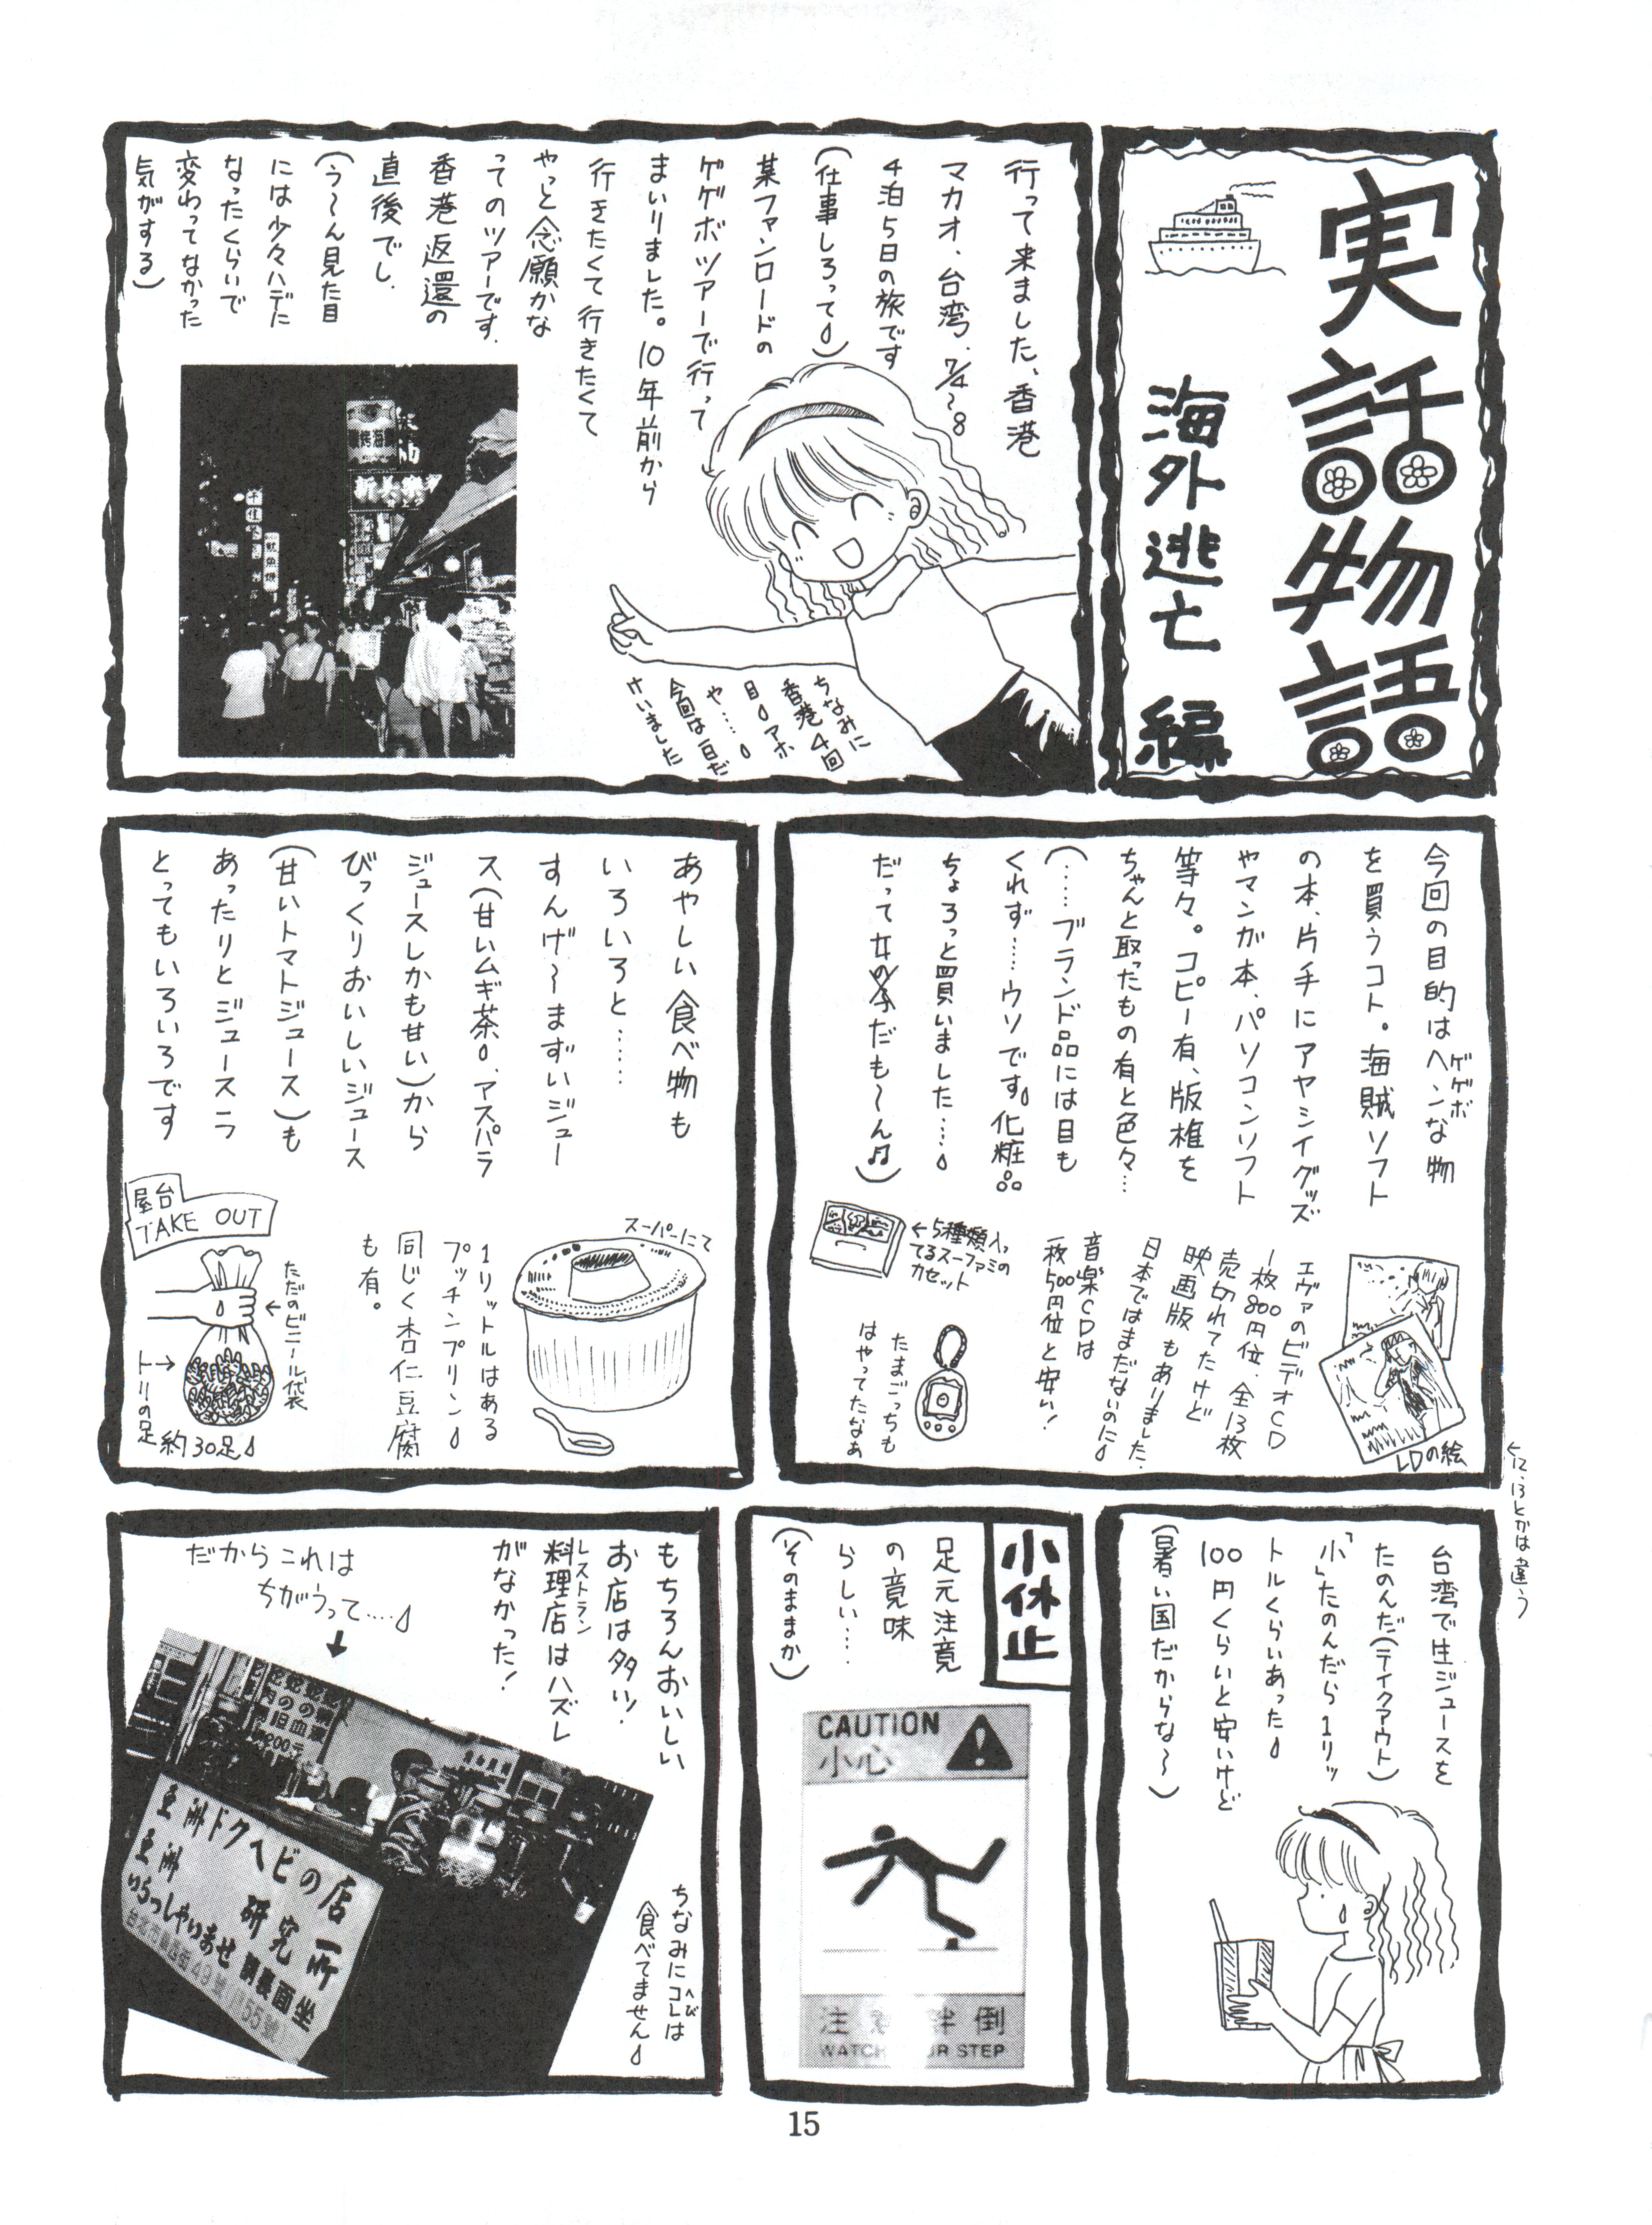 実話物語
海外逃亡 編
行って来ました、香港
マカオ、台湾、7/4～8
4泊5日の旅です
(仕事しろって)
某ファンロードの
ゲゲボツアーで行って
まいりました。10年前から
行きたくて行きたくて
やっと念願かな
ってのツアーです。
香港返還の
直後でし
(う～ん見た目
には少々ハデに
なったくらいで
変わってなかった
気がする)
ちなみに
香港4回
目アホ
や……
今回は一日だ
けいました
今回の目的はヘンな物
ゲゲボ
を買うコト。海賊ソフト
の本、片手にアヤシイグッズ
やマンガ本、パソコンソフト
等々。コピー有、版権を
ちゃんと取ったもの有と色々…
(……ブランド品には目も
くれず……ウソです。化粧品
ちょろっと買いました……
だって女の子だも～ん♫)
LDの絵
エヴァのビデオCD
一枚800円位、全13枚
売切れてたけど
映画版もありました。
日本ではまだないのに
音楽CDは
一枚500円位と安い!
←5種類入っ
てるスーファミの
カセット
たまごっちも
はやってたなあ
←12、13とかは違う
あやしい食べ物も
いろいろと……
すんげ～まずいジュー
ス(甘いムギ茶、アスパラ
ジュースしかも甘い)から
びっくりおいしいジュース
(甘いトマトジュース)も
あったりとジュースラ
とってもいろいろです
スーパーにて
1リットルはある
プッチンプリン
同じく杏仁豆腐
も有。
屋台
TAKE OUT
←ただのビニール袋
トリの足→
約30足
台湾で生ジュースを
たのんだ(テイクアウト)
「小」たのんだら1リッ
トルくらいあった
100円くらいと安いけど
(暑い国だからな～)
小休止
足元注意
の意味
らしい……
(そのままか)
CAUTION
小心
注意絆倒
WATCH YOUR STEP
もちろんおいしい
お店は多い!
料理店はハズレ
レストラン
がなかった!
だからこれは
ちがうって……
亜洲ドクヘビの店
亜洲 研究所
いらっしゃいませ 請裏面坐
ちなみにコレは
へび
食べてません
15